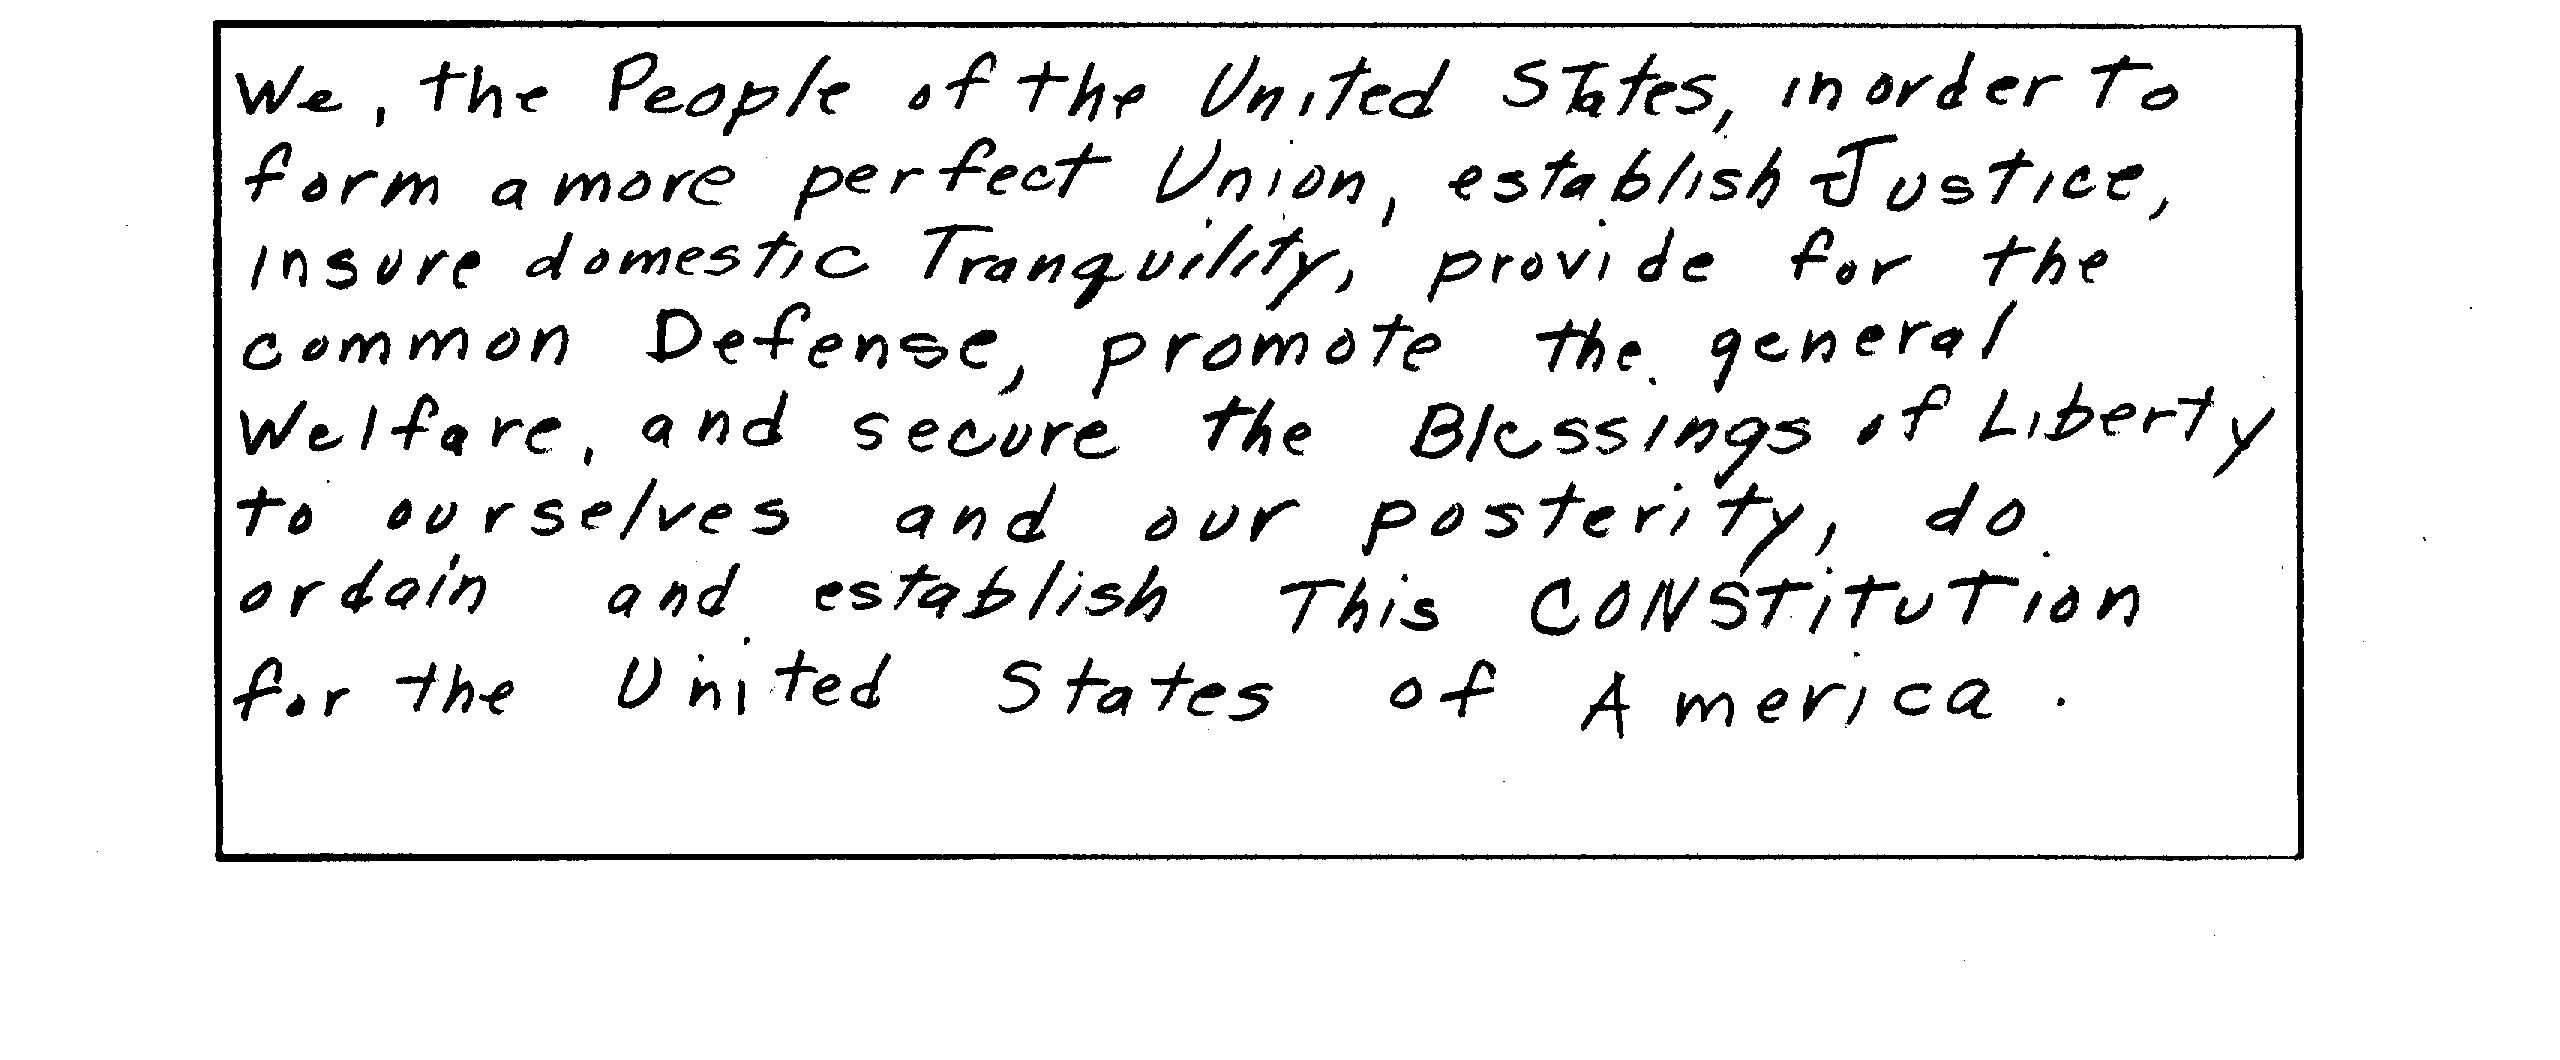 We, the People of the United States, in order to
form a more perfect Union, establish Justice,
insure domestic Tranquility, provide for the
common Defense, promote the general
Welfare, and secure the Blessings of Liberty
to ourselves and our posterity, do
ordain and establish This CONSTITUTION
for the United States of America.